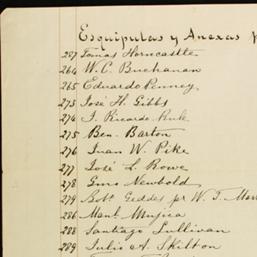 Esquipulas y Anexas
257 Tomas Horncastle
264 W. C. Buchanan
265 Eduardo Penney
273 José H. Gibbs
274 J. Ricardo Rule
275 Ben. Barton
276 Juan W. Pike
277 José L. Rowe
278 Gmo Newbold
279 Robt. Geddes pr W. T.
286 Manl. Mujica
288 Santiago Sullivan
289 Julio A. Skilton